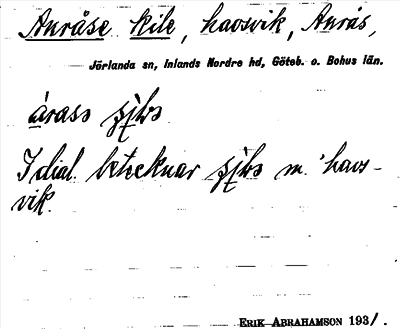 Anråse kile, havsvik, Anrås,
Jörlanda sn, Inlands Nordre hd, Göteb. o. Bohus län.
I dial. betecknar m. 'havs-
vik.
ERIK ABRAHAMSON 193/.